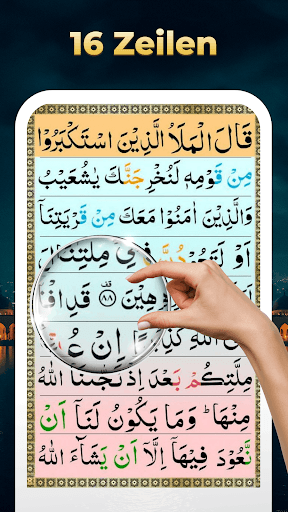 16 Zeilen
قَالَ الْمَلَاُ الَّذِيْنَ اسْتَكْبَرُوْا
مِنْ قَوْمِهٖ لَنُخْرِجَنَّكَ يٰشُعَيْبُ
وَالَّذِيْنَ اٰمَنُوْا مَعَكَ مِنْ قَرْيَتِنَاۤ
اَوْ لَتَعُوْدُنَّ فِيْ مِلَّتِنَا
﴿٨٨﴾ قَدِ
اللّٰهِ كَذِبًا اِنْ
مِلَّتِكُمْ بَعْدَ اِذْ نَجّٰىنَا اللّٰهُ
مِنْهَا ؕ وَمَا يَكُوْنُ لَنَاۤ اَنْ
نَّعُوْدَ فِيْهَاۤ اِلَّاۤ اَنْ يَّشَآءَ اللّٰهُ